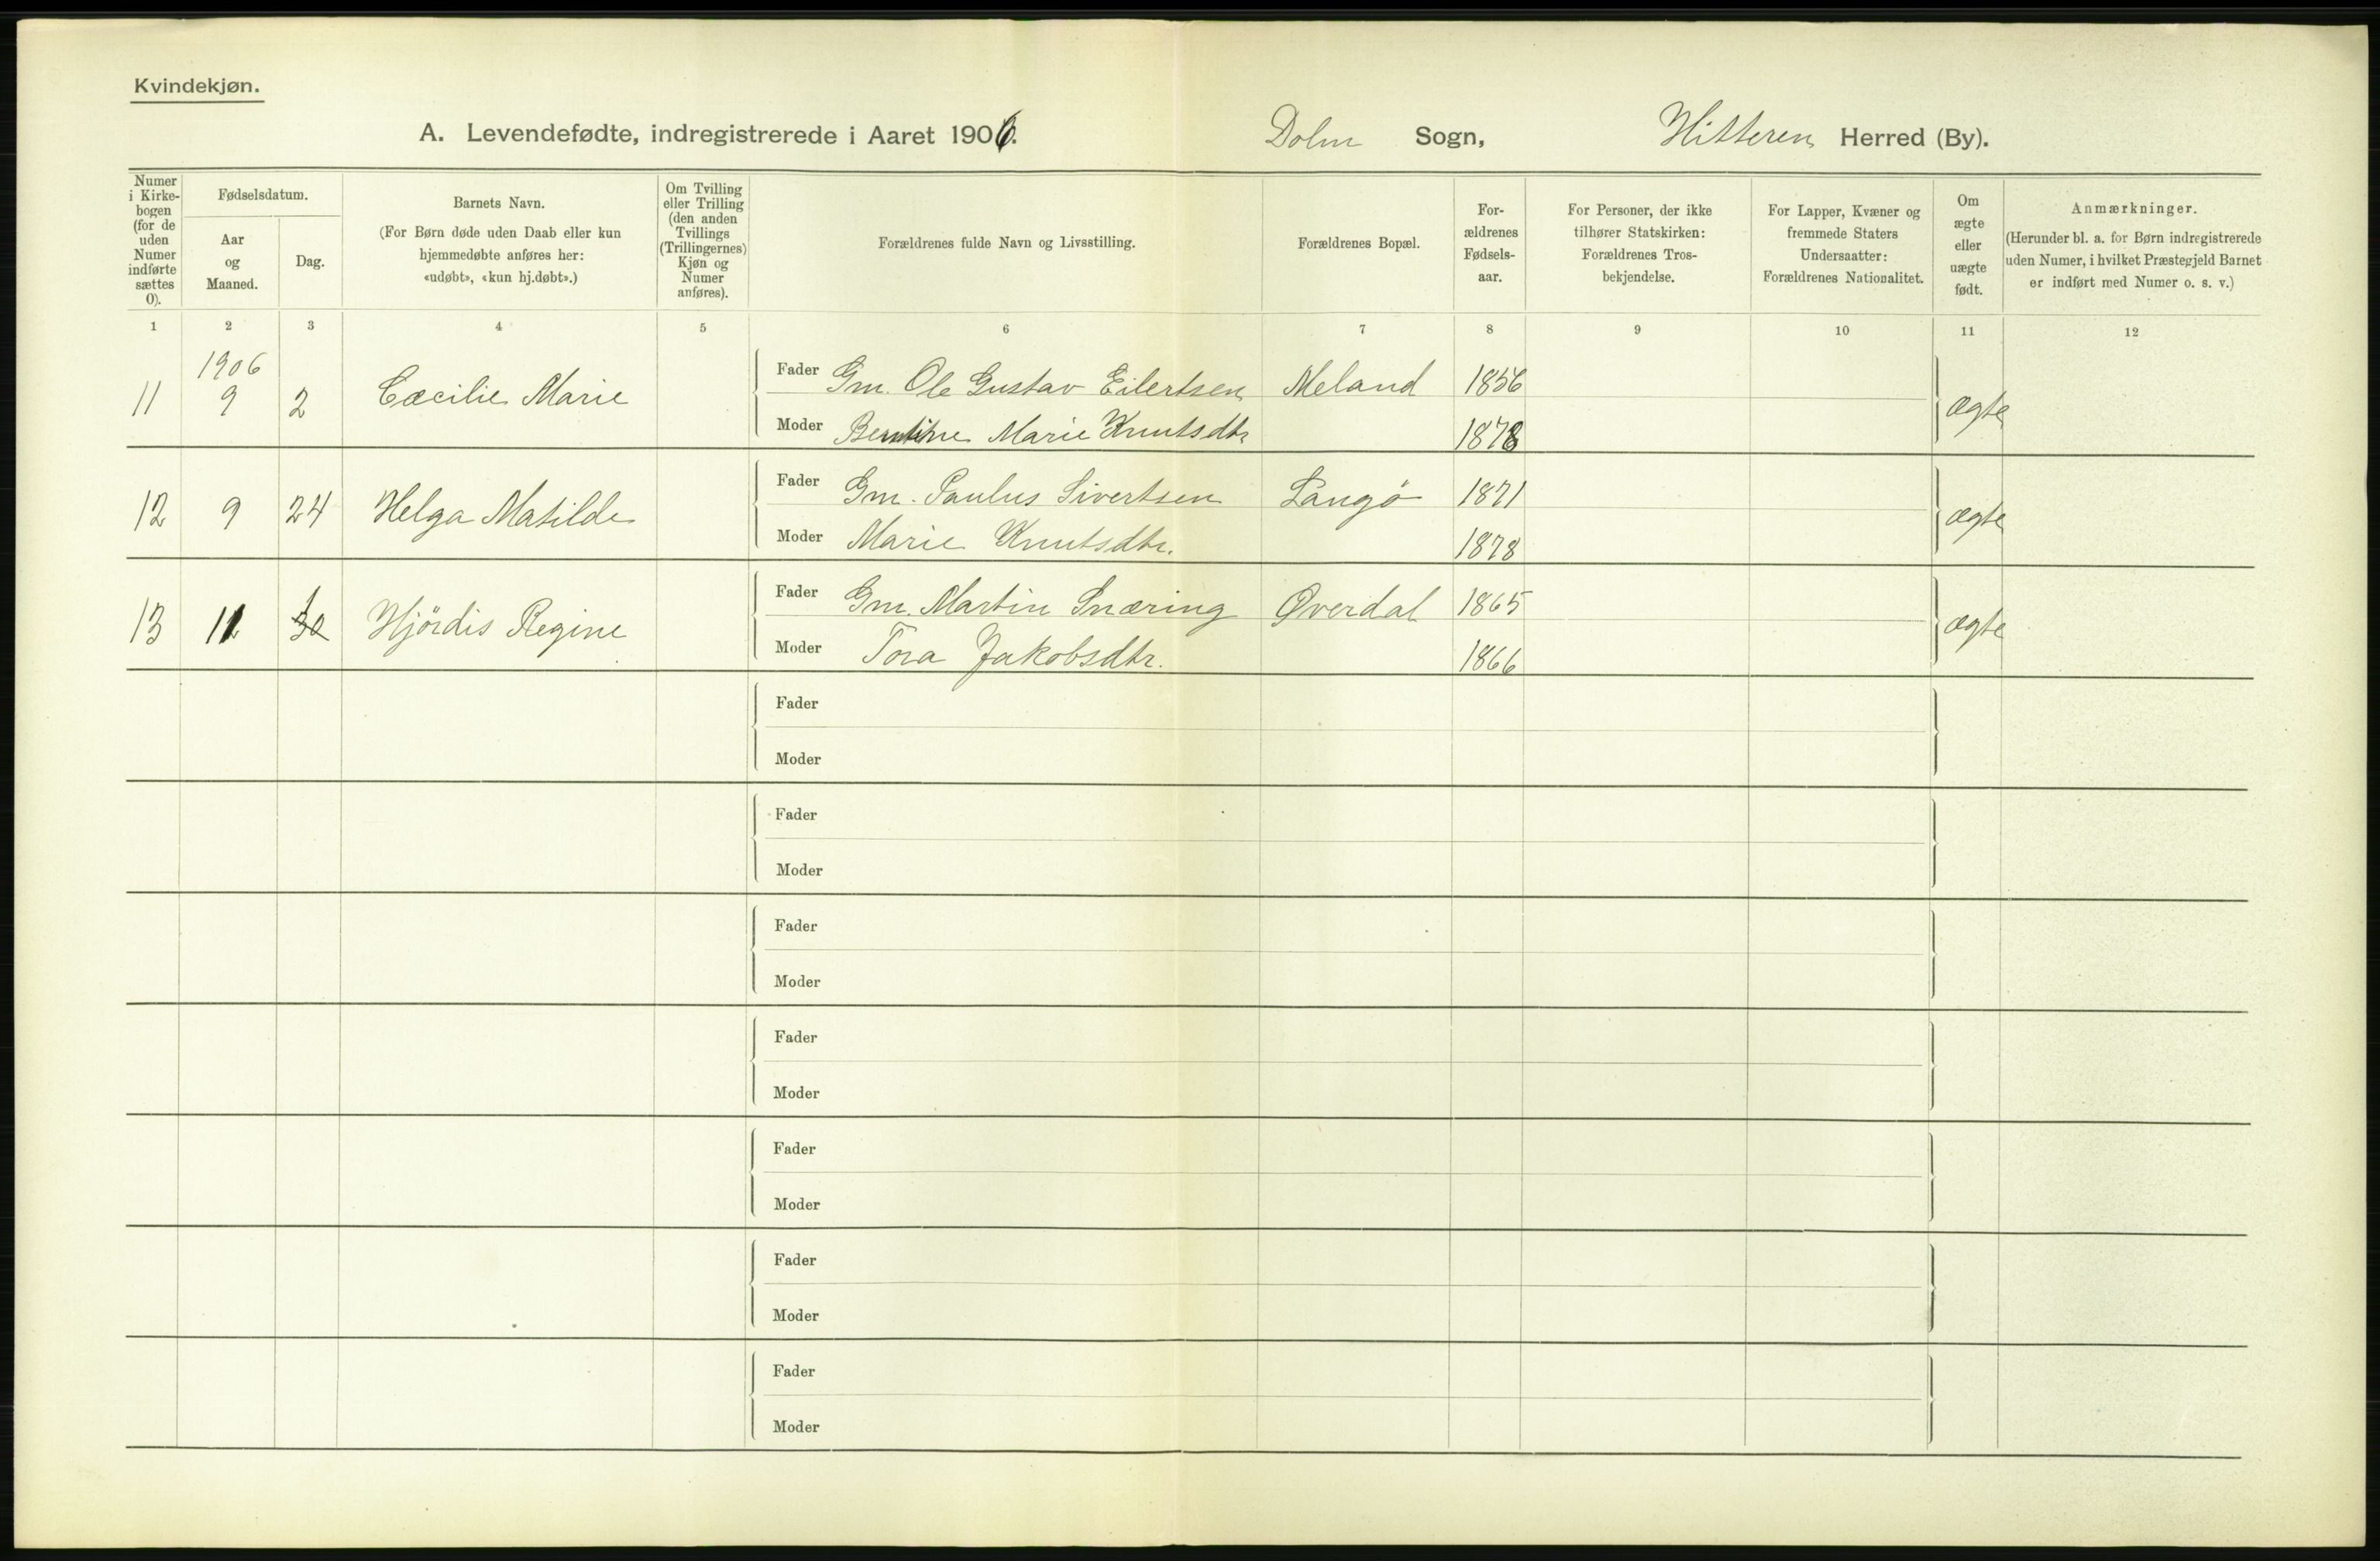 Kvindekjøn.
A. Levendefødte, indregistrerede i Aaret 1906. Dolm Sogn, Hitteren Herred (By).
Numer i Kirkebogen (for de uden Numer indførte sættes 0).
Fødselsdatum.
Aar og Maaned.
Dag.
Barnets Navn.
(For Børn døde uden Daab eller kun hjemmedøbte anføres her: «udøbt», «kun hj.døbt».)
Om Tvilling eller Trilling (den anden Tvillings (Trillingernes) Kjøn og Numer anføres).
Forældrenes fulde Navn og Livsstilling.
Forældrenes Bopæl.
For-ældrenes Fødsels-aar.
For Personer, der ikke tilhører Statskirken: Forældrenes Tros-bekjendelse.
For Lapper, Kvæner og fremmede Staters Undersaatter: Forældrenes Nationalitet.
Om ægte eller uægte født.
Anmærkninger.
(Herunder bl. a. for Børn indregistrerede uden Numer, i hvilket Præstegjeld Barnet er indført med Numer o. s. v.)
1 2 3 4 5 6 7 8 9 10 11 12
1906
11 9 2 Cæcilie Marie Fader Gm. Ole Gustav Eilertsen Meland 1856 ægte
Moder Berntine Marie Knutsdtr 1878
12 9 24 Helga Matilde Fader Gm. Paulus Sivertsen Langö 1871 ægte
Moder Marie Knutsdtr. 1878
13 11 1 30 Hjördis Regine Fader Gm. Martin Snæring Øverdal 1865 ægte
Moder Tora Jakobsdtr. 1866
Fader
Moder
Fader
Moder
Fader
Moder
Fader
Moder
Fader
Moder
Fader
Moder
Fader
Moder